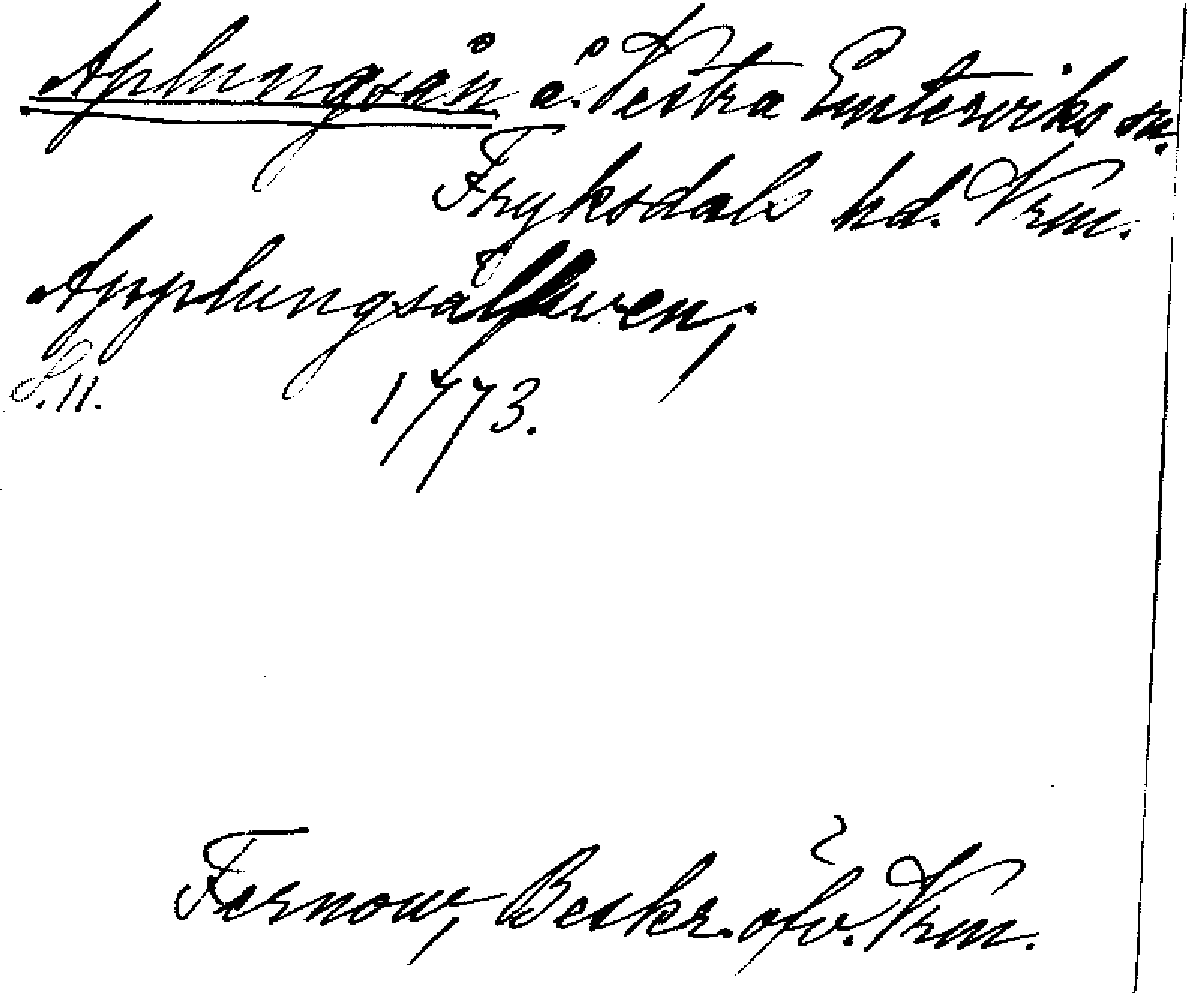 Aplungsån å. Vestra Emterviks sn.
Fryksdals hd. Vrm.
Applungsälfwen;
S. 11. 1773.
Fernow, Beskr. öfv. Vrm.